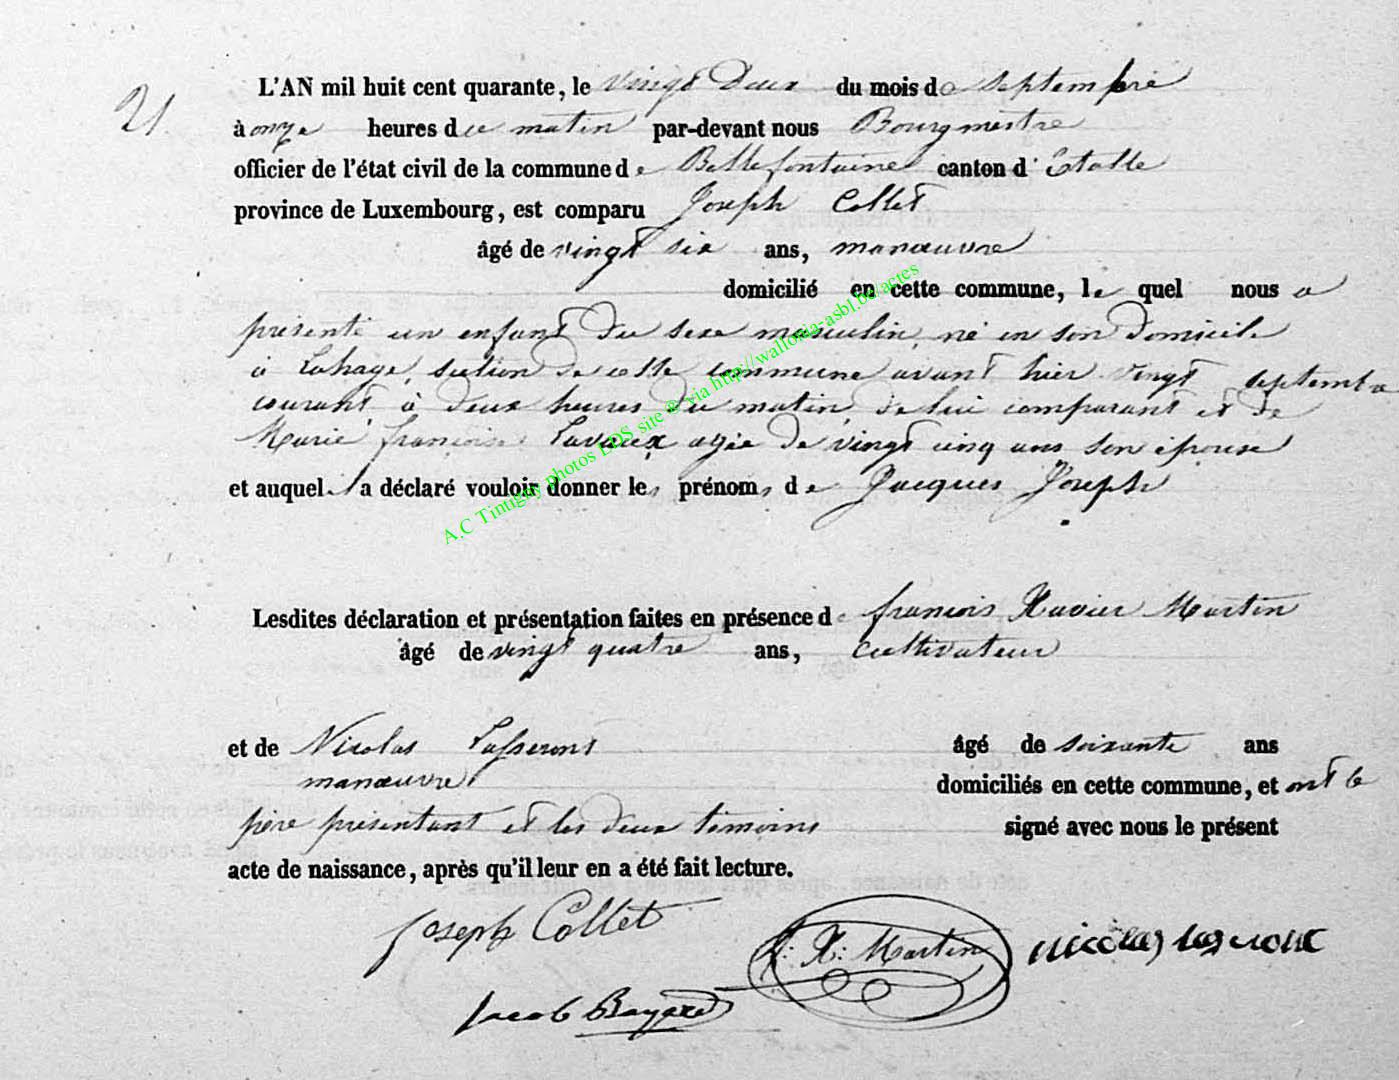 21.
L'AN mil huit cent quarante, le vingt Deux du mois de Septembre
à onze heures due matin par-devant nous Bourgmestre
officier de l'état civil de la commune de Bellefontaine canton d'Etalle
province de Luxembourg, est comparu Joseph Collet
âgé de vingt six ans, manœuvre
domicilié en cette commune, le quel nous a
présenté un enfant Du sexe masculin, né en son Domicile
à Lahage, section de cette commune avant hier vingt septembre
courant à Deux heures Du matin de lui comparant et de
Marie françoise Lavaux agée de vingt cinq ans son épouse
et auquel il a déclaré vouloir donner les prénoms de Jacques Joseph
Lesdites déclaration et présentation faites en présence de françois Xavier Martin
âgé de vingt quatre ans, cultivateur
et de Nicolas âgé de soixante ans
manœuvre domiciliés en cette commune, et ont le
père présentant et les deux témoins signé avec nous le présent
acte de naissance, après qu'il leur en a été fait lecture.
Joseph Collet
f: X: Martin nicolas
Jacob Bayard
A.C Tintigny photos EPS site @ via http://wallonia-asbl.be/actes